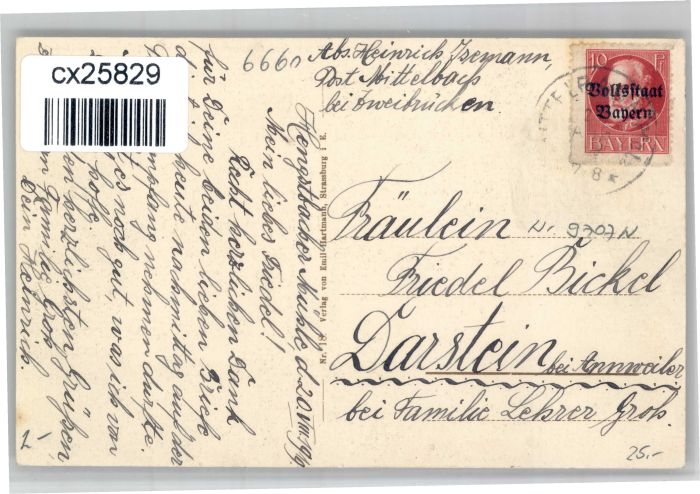 cx25829
6660
Abs. Heinrich Isemann,
Post Mittelbach
bei Zweibrücken.
10 Pf
Volksstaat
Bayern
BAYERN
Hengstbacher Mühle, d. 20 VIII 1919
Mein liebes Friedel!
Recht herzlichen Dank
für Deine beiden lieben Briefe
die ich heute nachmittag auf der
Empfang nehmen durfte.
es noch gut, was ich von
hoffe.
herzlichsten Grüßen,
Familie Groh
Dein Heinrich.
Nr. 18 Verlag von Emil Hartmann, Strassburg i. E.
Fräulein
Nr 9707N
Friedel Bickel
Darstein bei Annweiler
bei Familie Lehrer Groh.
1-
25.-